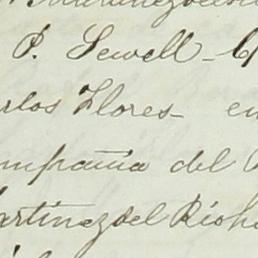 P. Sewell -
arlos Flores - en
ompañia del
artinez del Rio